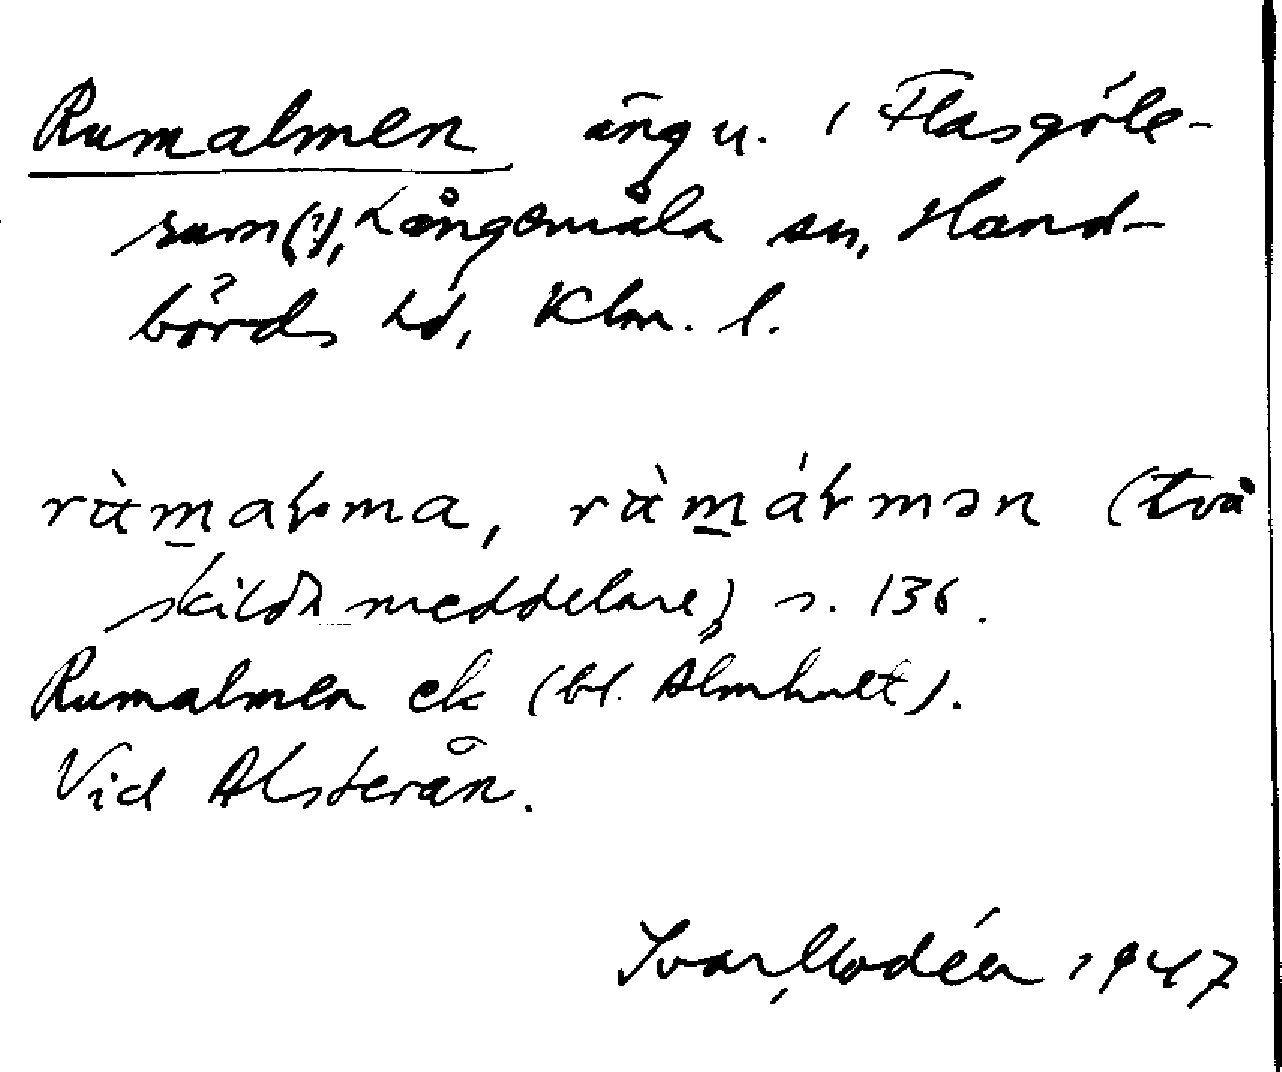 Rumalmen äng u. i Flasgöle-
rum(?), Långemåla sn, Hand-
börds hd, Klm. l.
rùm̲aɫma, rùm̲áɫmən (två
skilda meddelare) s. 136.
Rumalmen ek (bl. Älmhult).
Vid Alsterån.
Ivar Modéer 1947